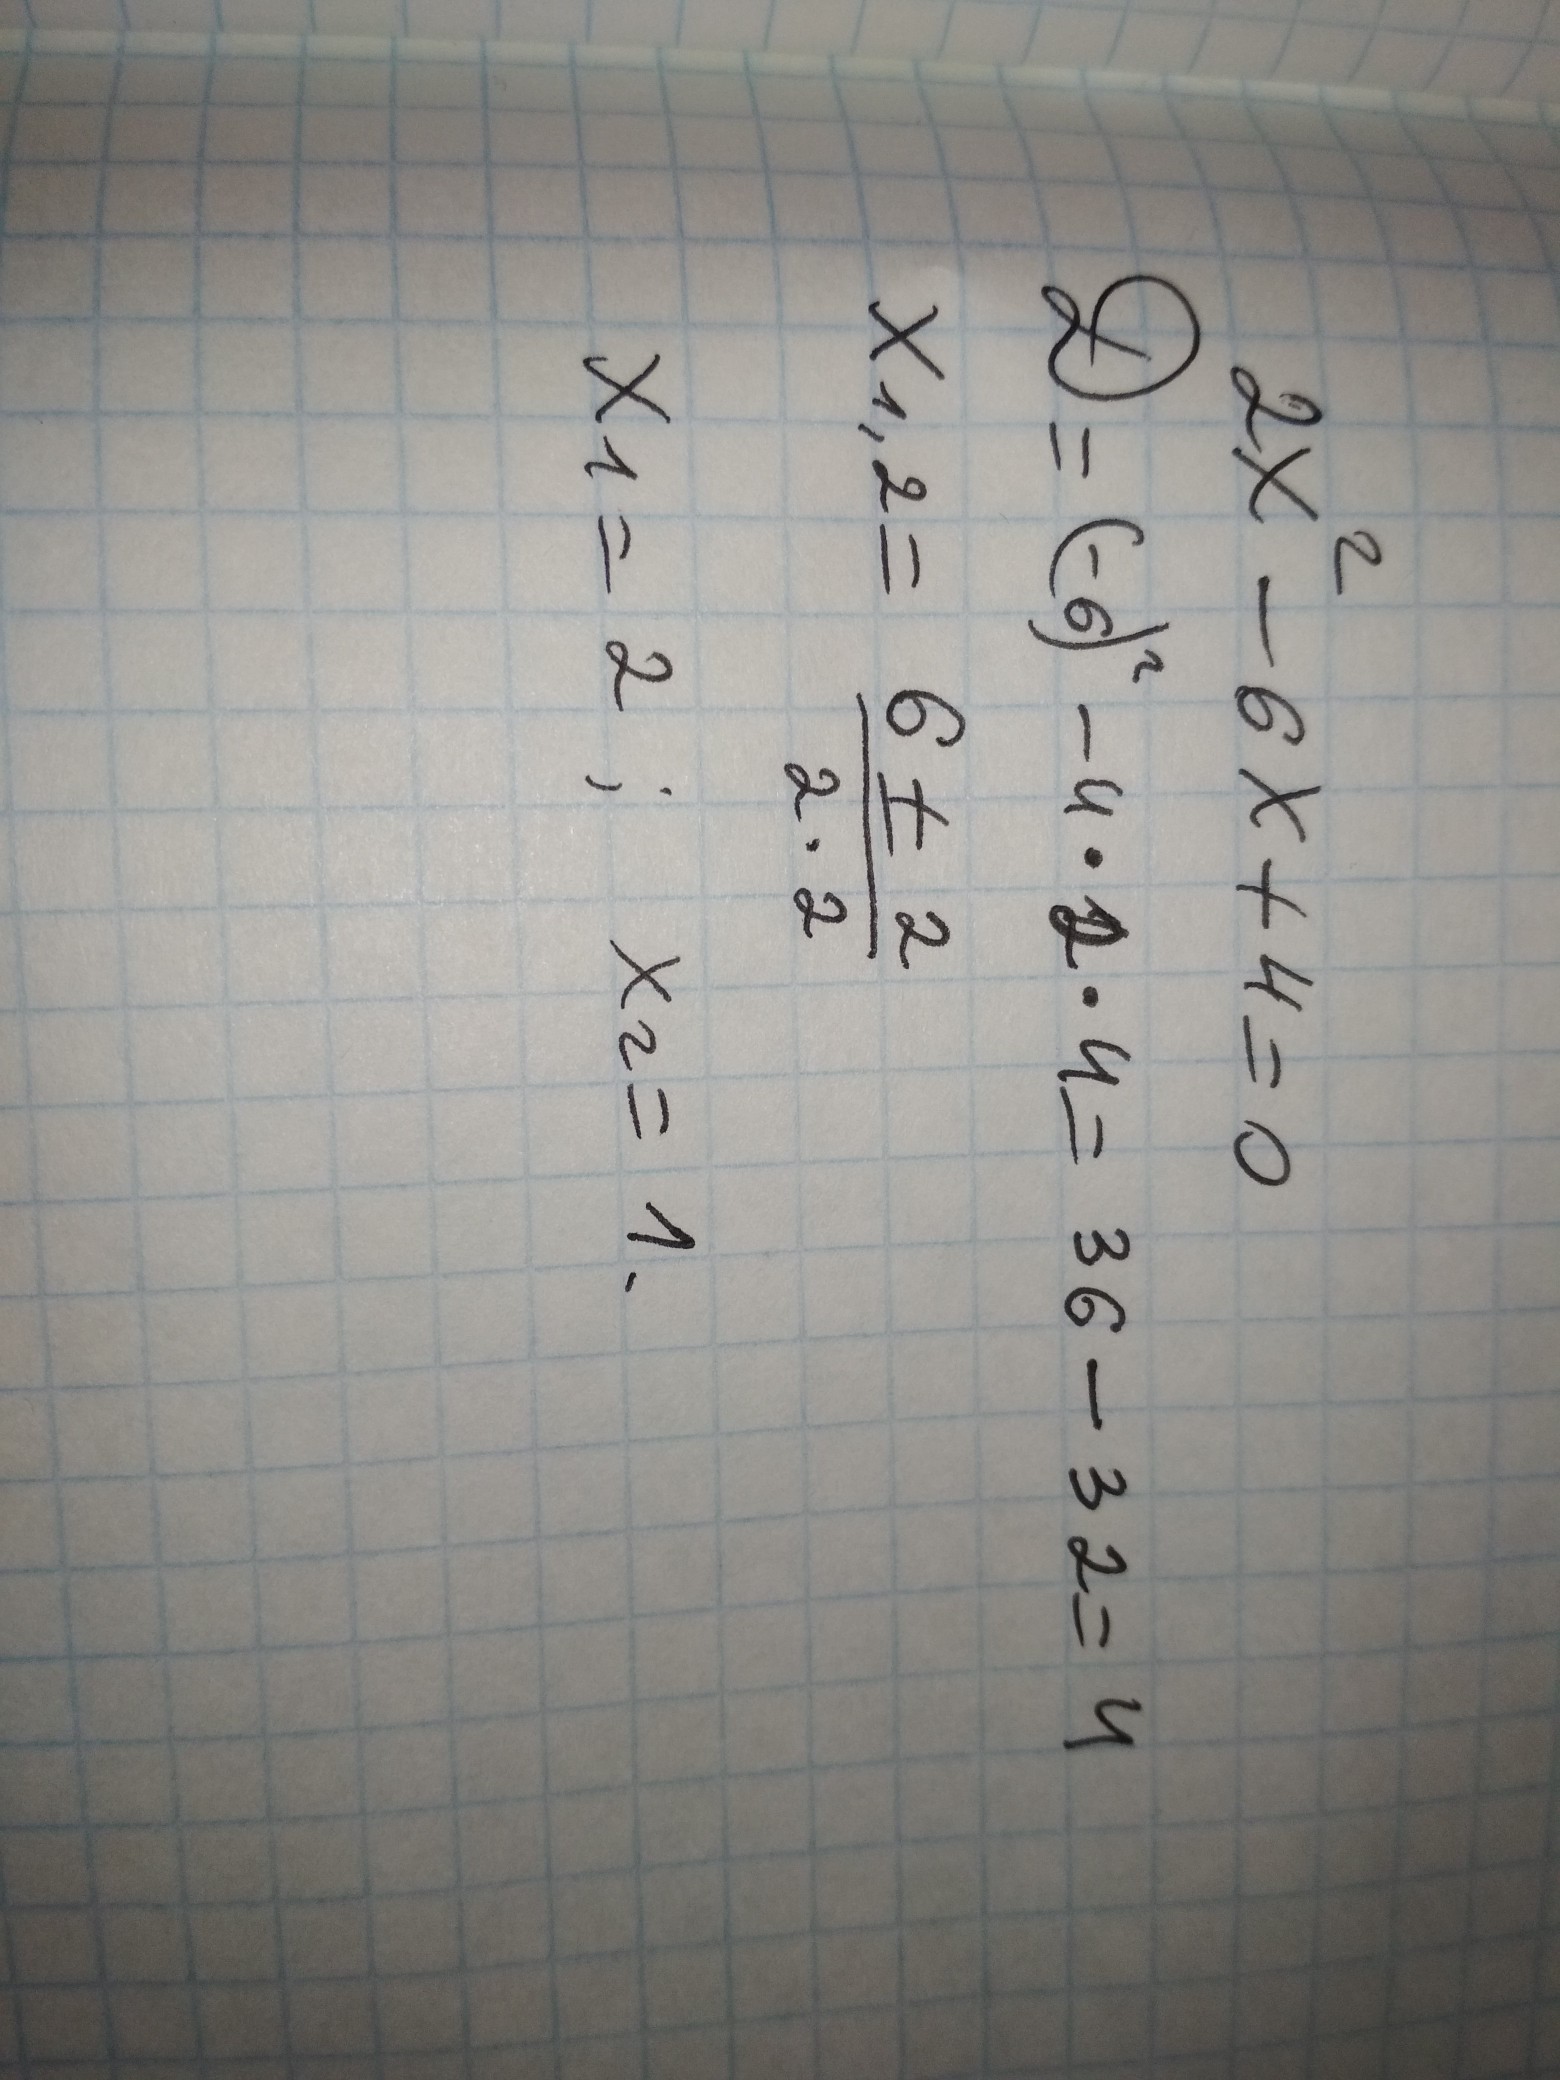 2x² - 6x + 4 = 0
D = (-6)² - 4 · 2 · 4 = 36 - 32 = 4
x₁,₂ = (6 ± 2) / (2 · 2)
x₁ = 2 ; x₂ = 1.